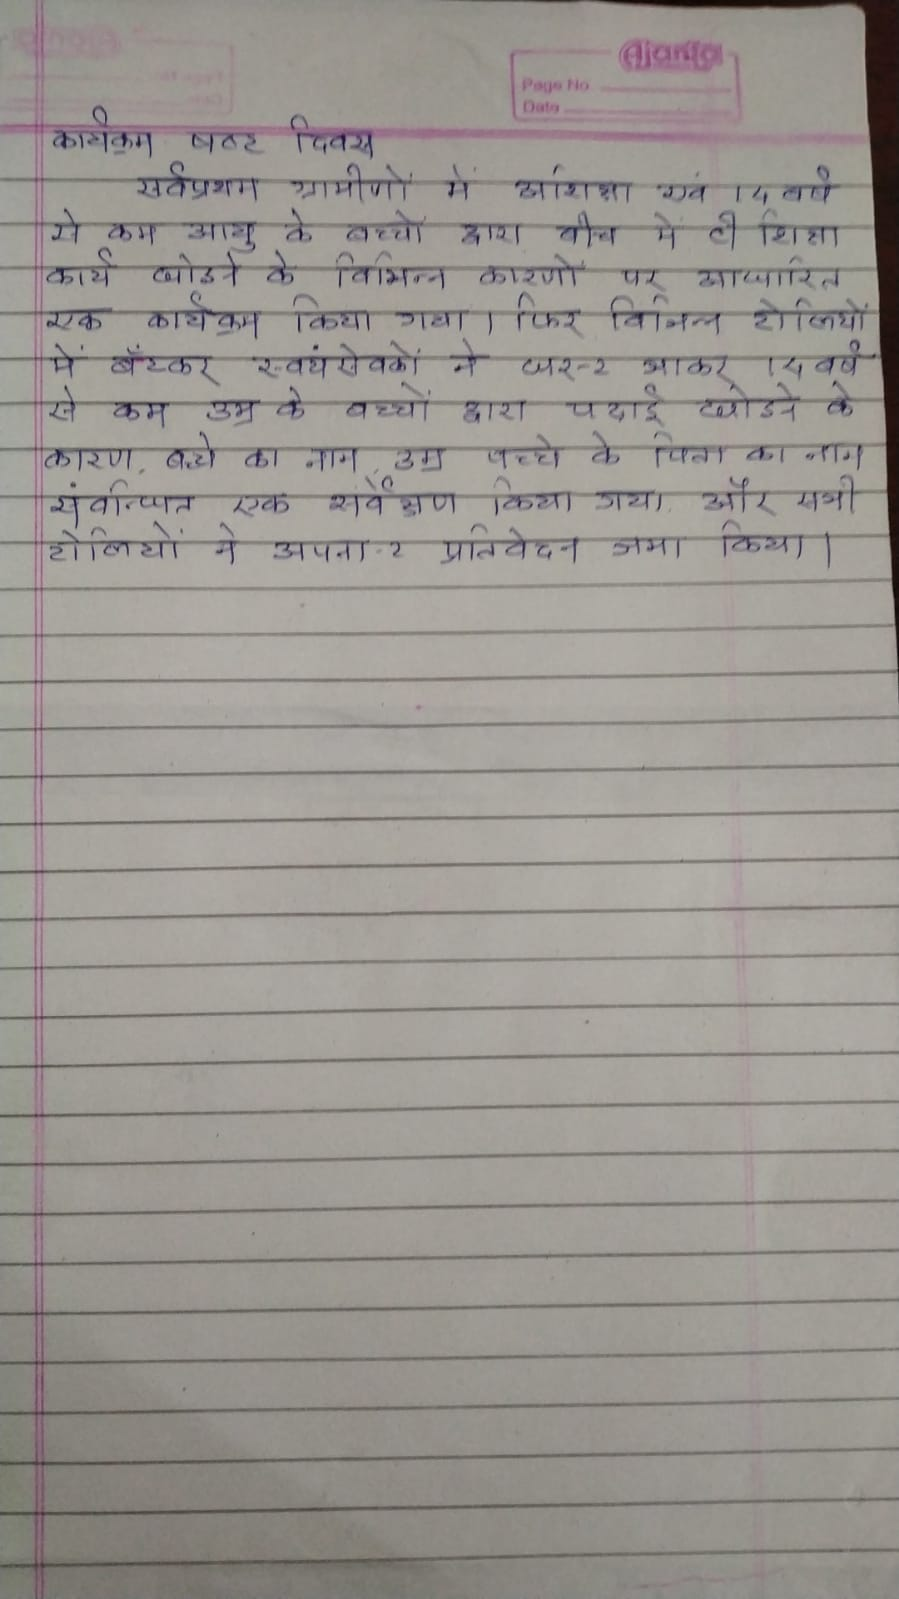 Ajanta
Page No
Date
कार्यक्रम षष्ट दिवस
सर्वप्रथम ग्रामीणों में अशिक्षा एवं 14 वर्ष
से कम आयु के बच्चों द्वारा बीच में ही शिक्षा
कार्य छोडने के विभिन्न कारणों पर आधारित
एक कार्यक्रम किया गया। फिर विभिन्न टोलियों
में बँटकर स्वयंसेवकों ने घर-२ जाकर 14 वर्ष
से कम उम्र के बच्चों द्वारा पढाई छोडने के
कारण, बच्चे का नाम, उम्र बच्चे के पिता का नाम
संबन्धित एक सर्वेक्षण किया गया. और सभी
टोलियों ने अपना-२ प्रतिवेदन जमा किया।